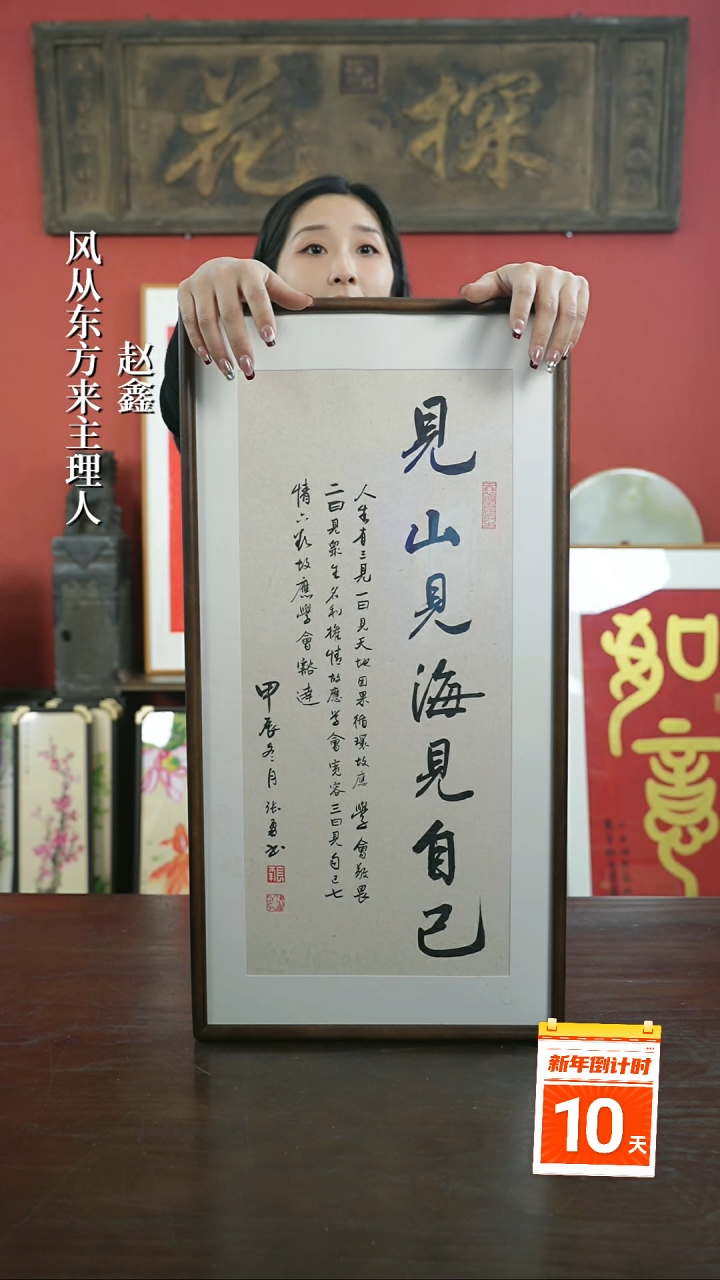 探花
赵鑫
风从东方来主理人
見山見海見自己
人生有三見一曰見天地因果循環故應學會敬畏
二曰見衆生名利擔情故應學會寬容三曰見自己七
情六欲故應學會豁達
甲辰冬月張勇书
如意
新年倒计时
10天